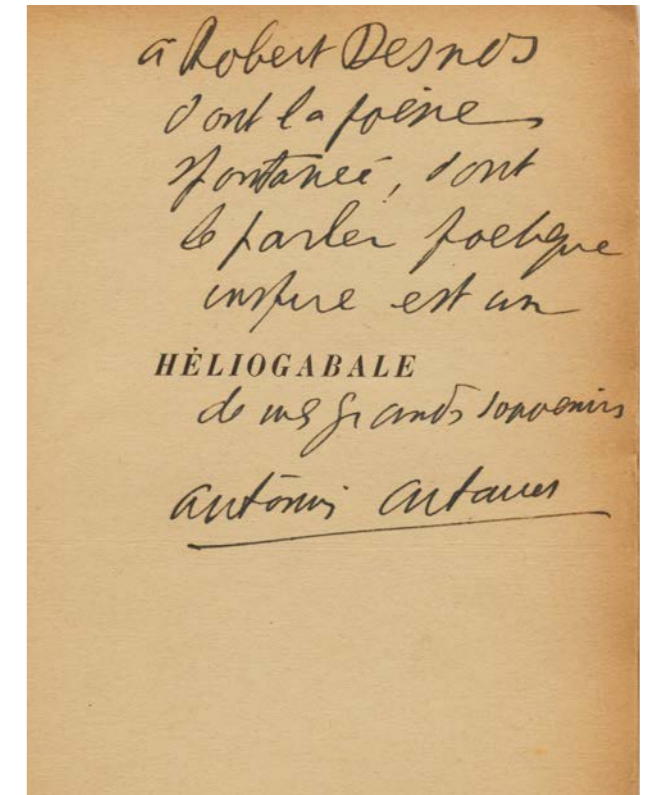 à Robert Desnos
dont la poésie
spontanée, dont
le parler poétique
inspiré est un
HÉLIOGABALE
de mes grands souvenirs
antonin artaud